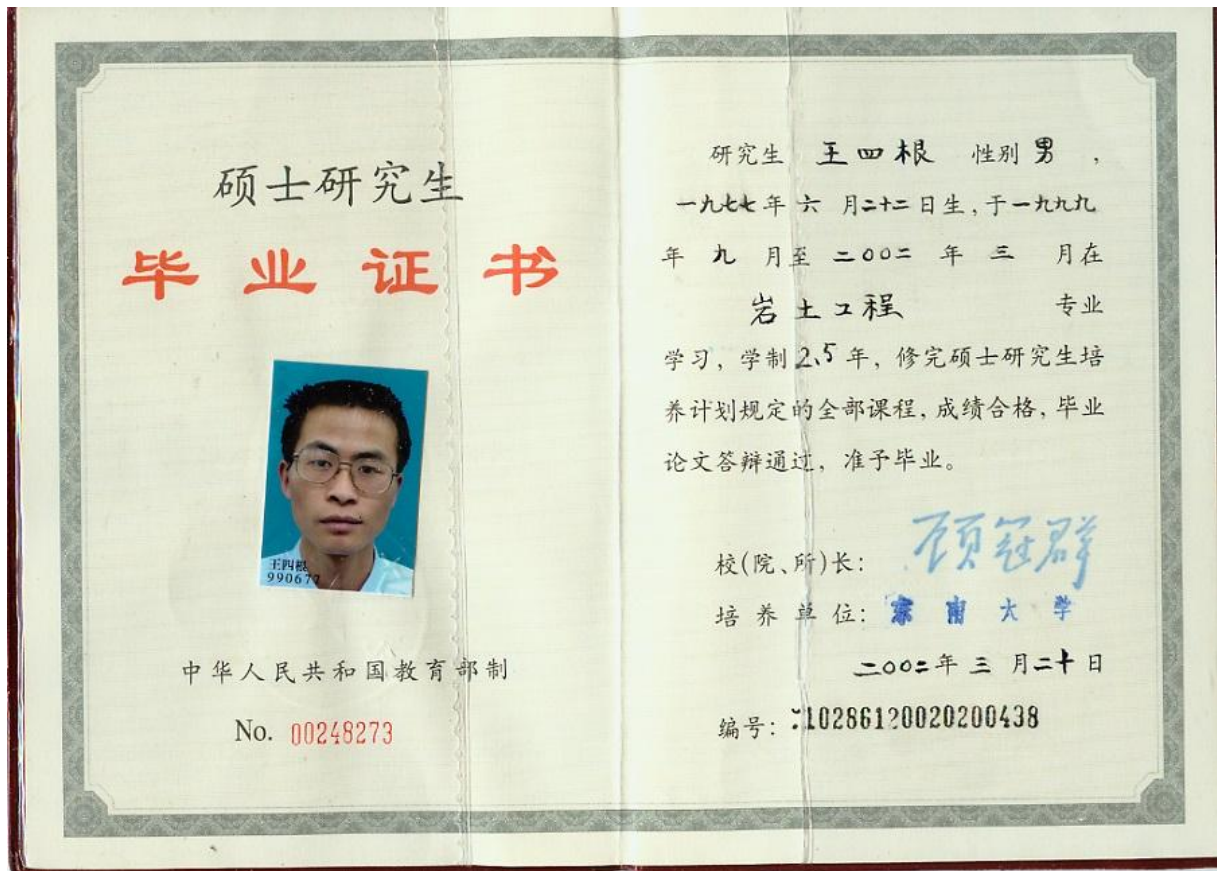 硕士研究生
毕业证书
王四根
990677
中华人民共和国教育部制
No. 00248273
研究生 王四根 性别 男 ,
一九七七年 六 月二十二日生,于一九九九
年 九 月至 二〇〇二 年 三 月在
岩土工程 专业
学习, 学制2.5年, 修完硕士研究生培
养计划规定的全部课程, 成绩合格, 毕业
论文答辩通过, 准予毕业。
校(院、所)长: 顾冠群
培 养 单 位: 东 南 大 学
二〇〇二年 三 月二十日
编号: 10286120020200438